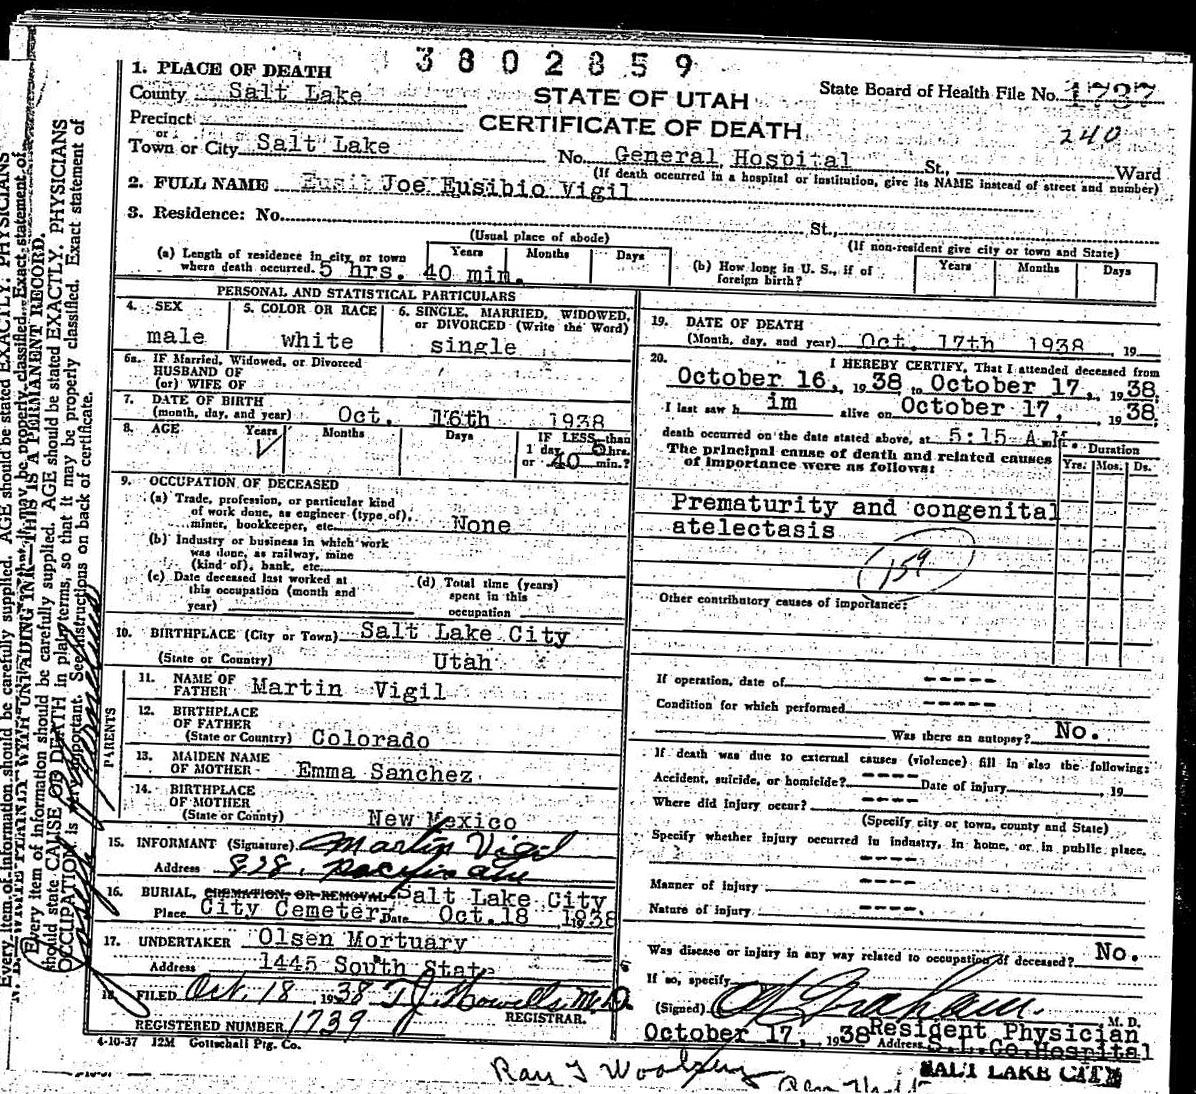 3802859
1. PLACE OF DEATH
County Salt Lake
STATE OF UTAH
State Board of Health File No. 1737
Precinct
CERTIFICATE OF DEATH
240
or
Town or City Salt Lake No. General Hospital St., Ward
(If death occurred in a hospital or institution, give its NAME instead of street and number)
2. FULL NAME Joe Eusibio Vigil
3. Residence: No. St.,
(Usual place of abode) (If non-resident give city or town and State)
(a) Length of residence in city or town where death occurred. 5 hrs. 40 min. Years Months Days
(b) How long in U. S., if of foreign birth? Years Months Days
PERSONAL AND STATISTICAL PARTICULARS
4. SEX
male
5. COLOR OR RACE
white
6. SINGLE, MARRIED, WIDOWED, or DIVORCED (Write the Word)
single
6a. IF Married, Widowed, or Divorced
HUSBAND OF
(or) WIFE OF
7. DATE OF BIRTH
(month, day, and year) Oct. 16th 1938
8. AGE Years Months Days
IF LESS than
1 day 5 hrs.
or 40 min.?
9. OCCUPATION OF DECEASED
(a) Trade, profession, or particular kind
of work done, as engineer (type of),
miner, bookkeeper, etc. None
(b) Industry or business in which work
was done, as railway, mine
(kind of), bank, etc.
(c) Date deceased last worked at
this occupation (month and
year)
(d) Total time (years)
spent in this
occupation
10. BIRTHPLACE (City or Town) Salt Lake City
(State or Country) Utah
PARENTS
11. NAME OF
FATHER Martin Vigil
12. BIRTHPLACE
OF FATHER
(State or Country) Colorado
13. MAIDEN NAME
OF MOTHER Emma Sanchez
14. BIRTHPLACE
OF MOTHER
(State or County) New Mexico
15. INFORMANT (Signature) Martin Vigil
Address 828. Pacific ave
16. BURIAL, CREMATION, OR REMOVAL Salt Lake City
Place City Cemetery Date Oct. 18 1938
17. UNDERTAKER Olsen Mortuary
Address 1445 South State
18. FILED Oct. 18, 1938 T J Howells M.D.
REGISTRAR.
REGISTERED NUMBER 1739
4-10-37 12M Gottschall Ptg. Co.
19. DATE OF DEATH
(Month, day, and year) Oct. 17th 1938, 19
20. I HEREBY CERTIFY, That I attended deceased from
October 16, 1938 to October 17, 1938,
I last saw him alive on October 17, 1938,
death occurred on the date stated above, at 5:15 A.M.
The principal cause of death and related causes
of importance were as follows:
Duration
Yrs. Mos. Ds.
Prematurity and congenital
atelectasis
159
Other contributory causes of importance:
If operation, date of -----
Condition for which performed -----
Was there an autopsy? No.
If death was due to external causes (violence) fill in also the following:
Accident, suicide, or homicide? ---- Date of injury , 19
Where did injury occur? ----
(Specify city or town, county and State)
Specify whether injury occurred in industry, in home, or in public place.
----
Manner of injury ----
Nature of injury ----
Was disease or injury in any way related to occupation of deceased? No.
If so, specify
(Signed) Graham M. D.
October 17, 1938 Resident Physician
Address S.L.Co.Hospital
SALT LAKE CITY
Every item of information should be carefully supplied. AGE should be stated EXACTLY. PHYSICIANS
should state CAUSE OF DEATH in plain terms, so that it may be properly classified. Exact statement of
OCCUPATION is very important. See instructions on back of certificate.
WRITE PLAINLY WITH UNFADING INK—THIS IS A PERMANENT RECORD.